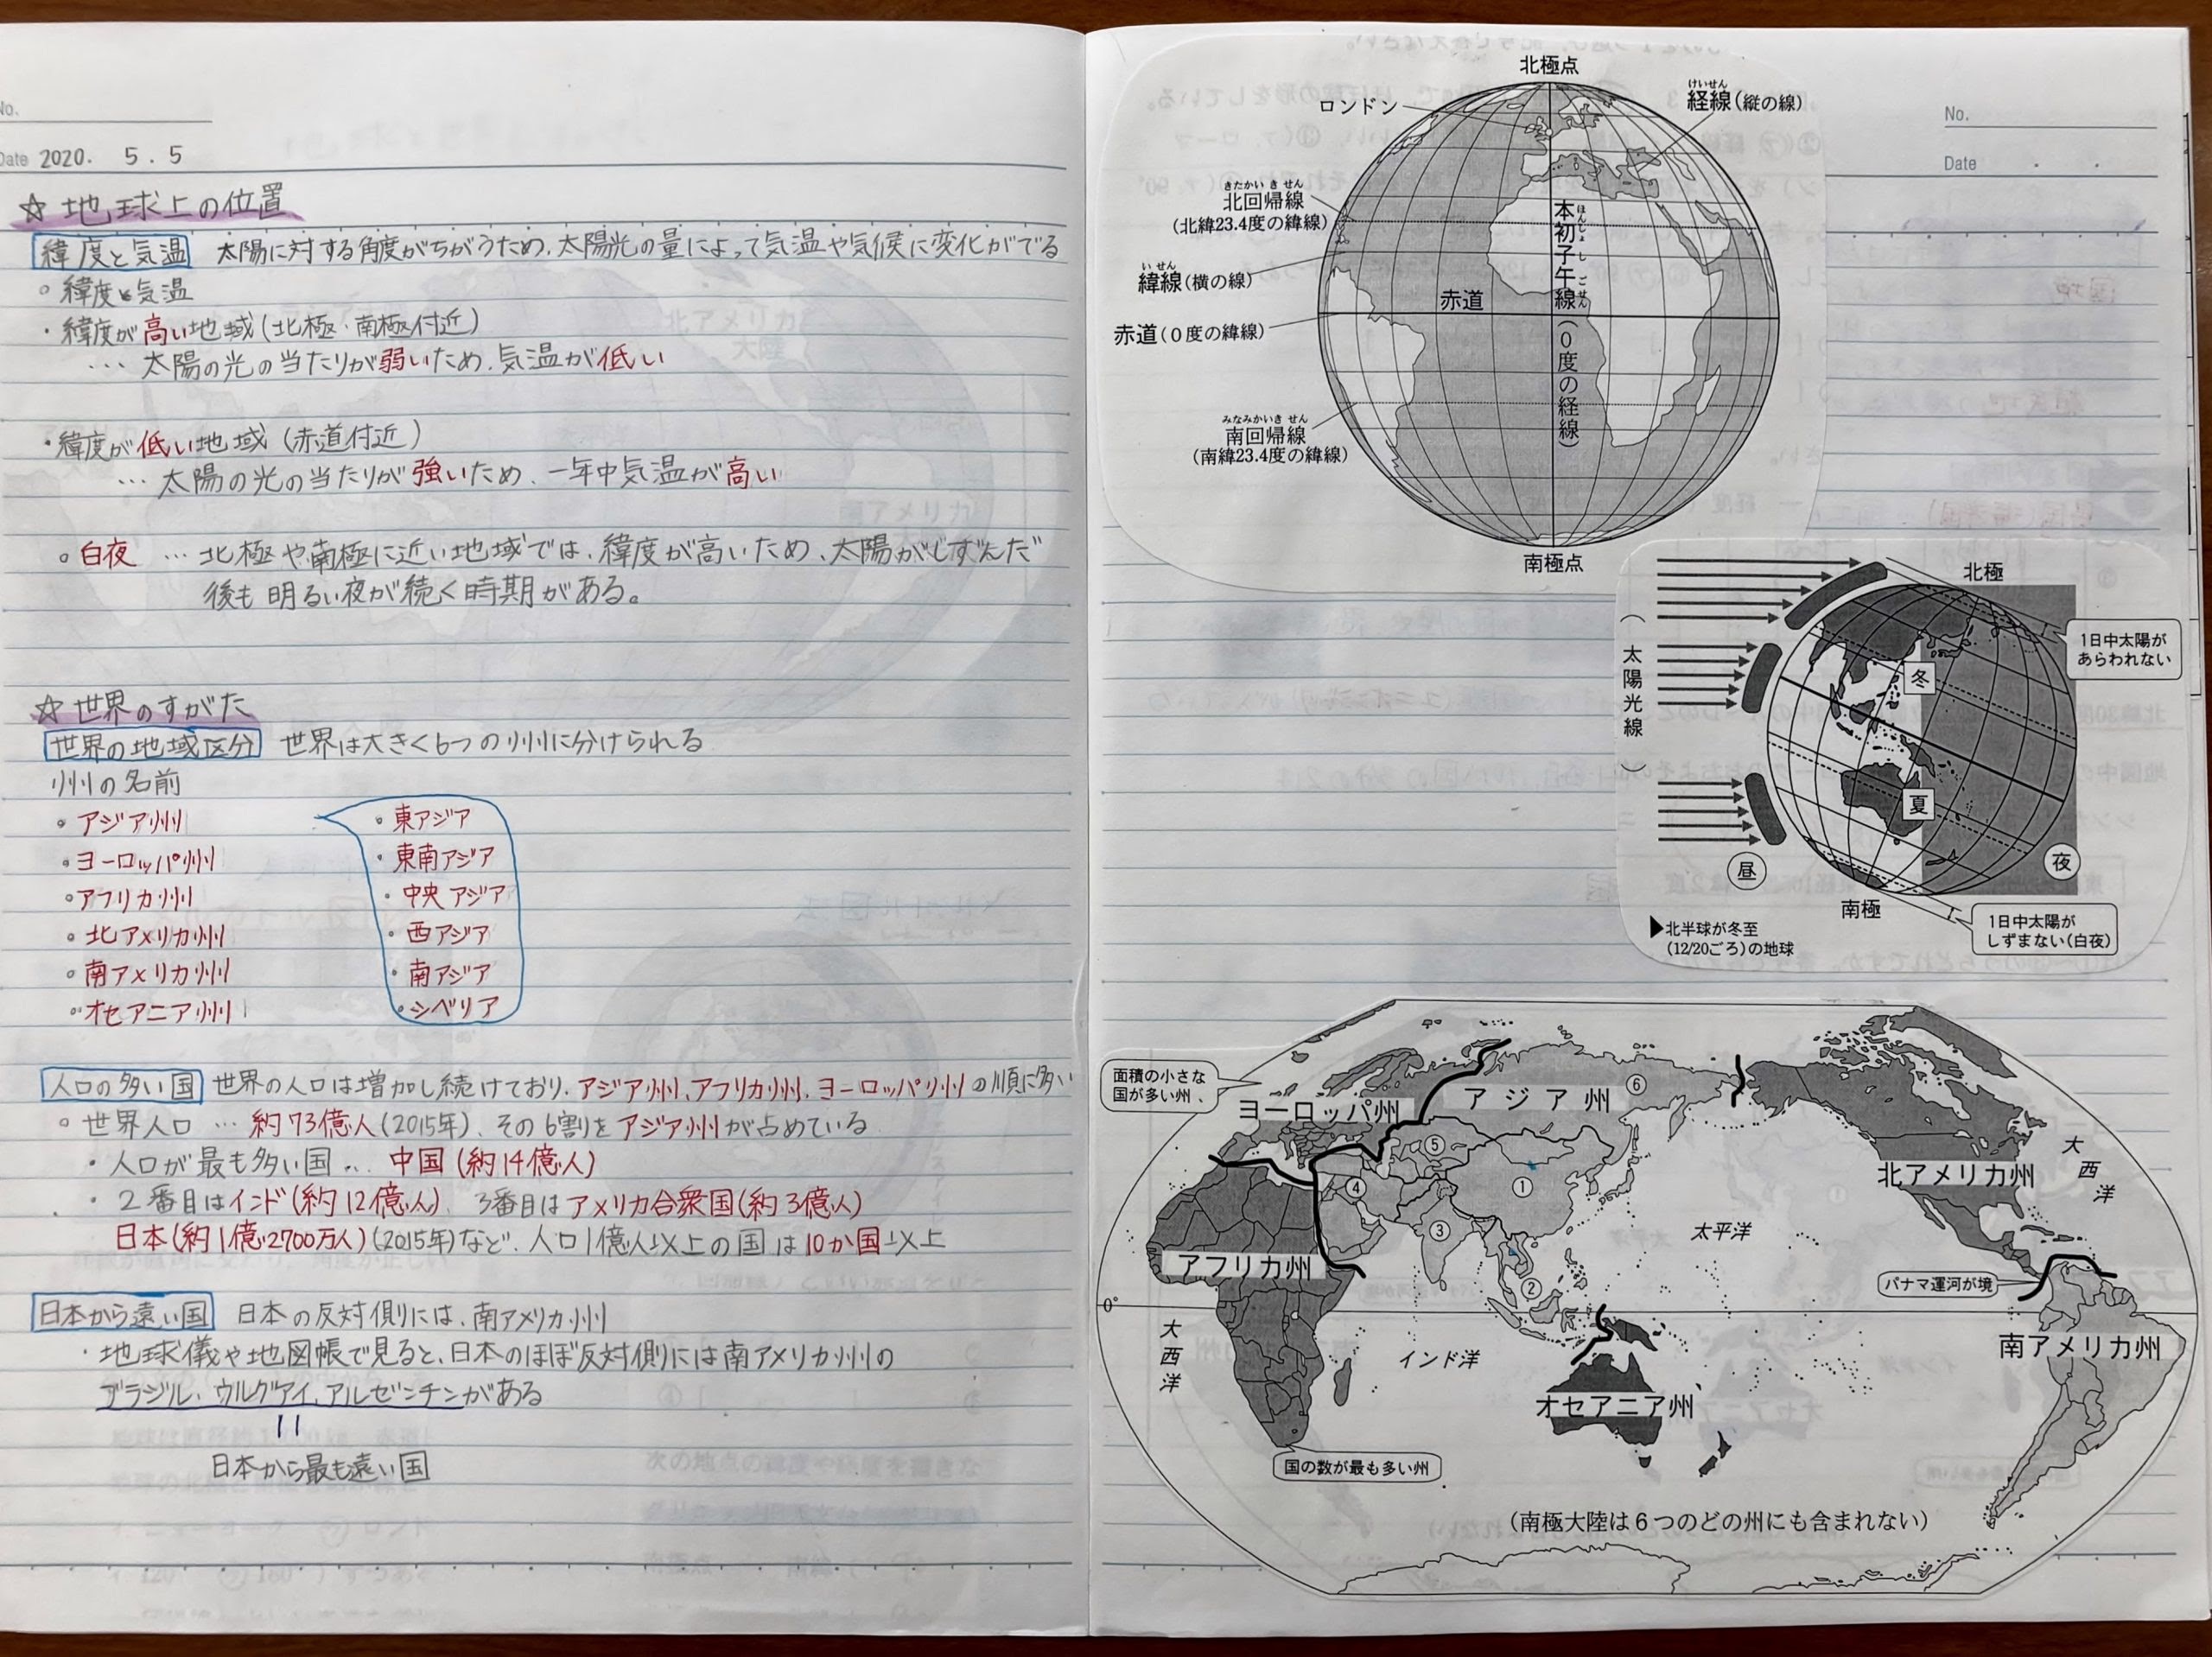 No.
Date 2020. 5. 5
☆ 地球上の位置
緯度と気温 太陽に対する角度がちがうため、太陽光の量によって気温や気候に変化がでる
○緯度と気温
・緯度が高い地域(北極・南極付近)
… 太陽の光の当たりが弱いため、気温が低い
・緯度が低い地域(赤道付近)
… 太陽の光の当たりが強いため、一年中気温が高い
○白夜 … 北極や南極に近い地域では、緯度が高いため、太陽がしずんだ
後も明るい夜が続く時期がある。
☆ 世界のすがた
世界の地域区分 世界は大きく6つの州に分けられる
州の名前
○アジア州
○ヨーロッパ州
○アフリカ州
○北アメリカ州
○南アメリカ州
○オセアニア州
・東アジア
・東南アジア
・中央アジア
・西アジア
・南アジア
・シベリア
人口の多い国 世界の人口は増加し続けており、アジア州、アフリカ州、ヨーロッパ州の順に多い
○世界人口 … 約73億人(2015年)、その6割をアジア州が占めている
・人口が最も多い国 … 中国(約14億人)
・2番目はインド(約12億人)、3番目はアメリカ合衆国(約3億人)
日本(約1億2700万人)(2015年)など、人口1億人以上の国は10か国以上
日本から遠い国 日本の反対側には、南アメリカ州
・地球儀や地図帳で見ると、日本のほぼ反対側には南アメリカ州の
ブラジル、ウルグアイ、アルゼンチンがある
||
日本から最も遠い国
No.
Date ・ ・
北極点
ロンドン
けいせん
経線(縦の線)
きたかいきせん
北回帰線
(北緯23.4度の緯線)
いせん
緯線(横の線)
赤道
赤道(0度の緯線)
本初子午線(0度の経線)
ほんしょしごせん
みなみかいきせん
南回帰線
(南緯23.4度の緯線)
南極点
北極
(太陽光線)
1日中太陽が
あらわれない
冬
夏
昼
夜
南極
1日中太陽が
しずまない(白夜)
▶北半球が冬至
(12/20ごろ)の地球
面積の小さな
国が多い州
ヨーロッパ州
アジア州
⑥
⑤
④
①
③
②
北アメリカ州
大西洋
太平洋
アフリカ州
パナマ運河が境
0°
大西洋
インド洋
南アメリカ州
オセアニア州
国の数が最も多い州
(南極大陸は6つのどの州にも含まれない)